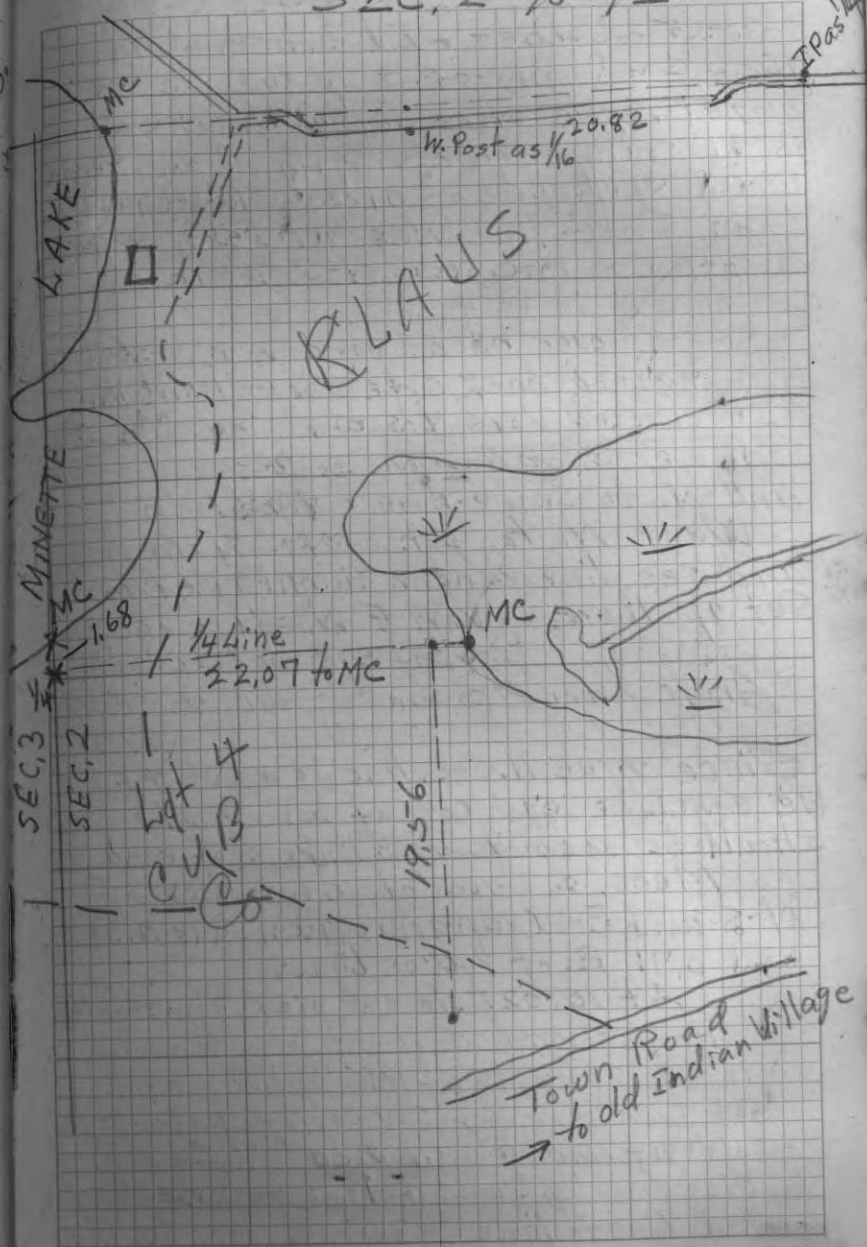 SEC. 2
I Pas 1/4
MC
W. Post as 1/16 20.82
LAKE
KLAUS
MINETTE
MC
1.68
1/4 Line
22.07 to MC
MC
SEC. 3
SEC. 2
Lot 4
19.56
Town Road
to old Indian Village